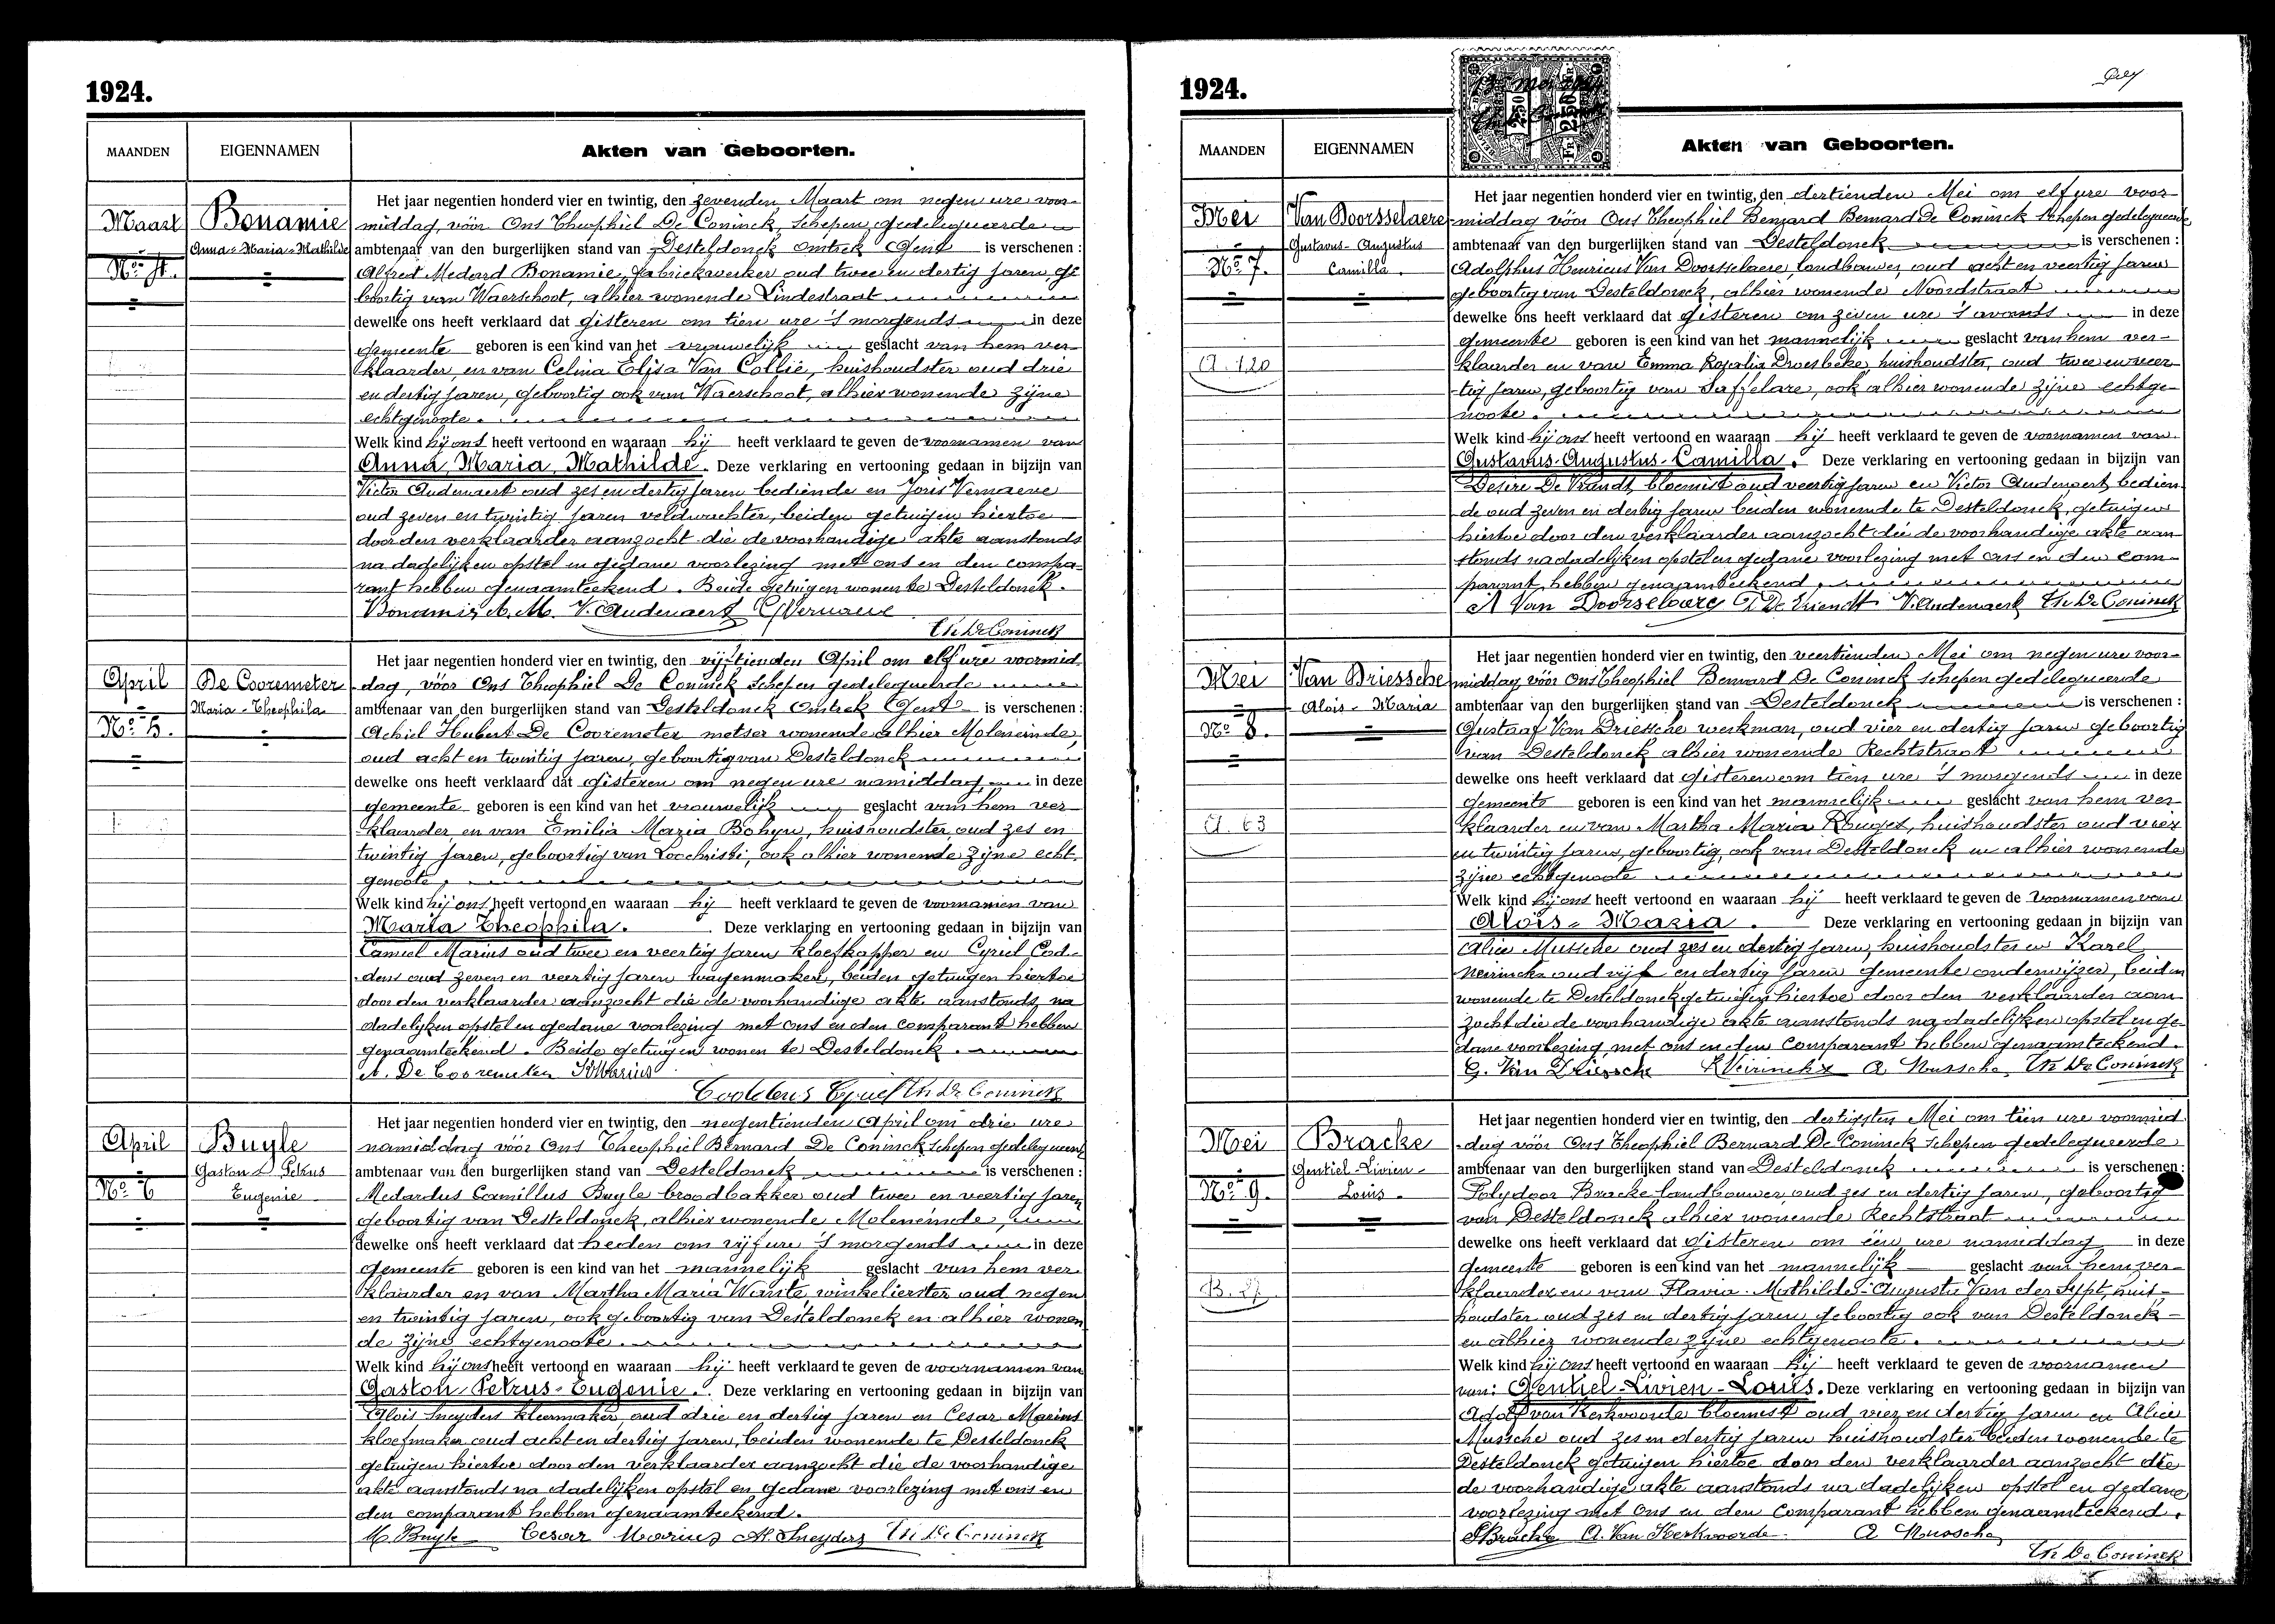 1924.
MAANDEN
EIGENNAMEN
Akten van Geboorten.
Maart
Bonamie
Anna-Maria-Mathilde
No 4.
Het jaar negentien honderd vier en twintig, den zevenden Maart om negen ure voor-
middag, vóór Ons Theophiel De Coninck, schepen, gedelegueerde
ambtenaar van den burgerlijken stand van Desteldonck omtrek Gent is verschenen :
Alfred Medard Bonamie, fabriekwerker oud twee en dertig jaren, ge
boortig van Waerschoot, alhier wonende Lindestraat
dewelke ons heeft verklaard dat gisteren om tien ure 's morgends in deze
gemeente geboren is een kind van het vrouwelijk geslacht van hem ver-
klaarder, en van Celina Elisa Van Collie, huishoudster oud drie
en dertig jaren, geboortig ook van Waerschoot, alhier wonende zijne
echtgenoote.
Welk kind hij ons heeft vertoond en waaraan hij heeft verklaard te geven de voornamen van
Anna, Maria, Mathilde. Deze verklaring en vertooning gedaan in bijzijn van
Victor Audenaert oud zes en dertig jaren bediende en Joris Vernaeve
oud zeven en twintig jaren veldwachter, beiden getuigen hiertoe
door den verklaarder aanzocht die de voorhandige akte aanstonds
na dadelijken opstel en gedane voorlezing met ons en den compa-
rant hebben genaamteekend. Beide getuigen wonen te Desteldonck.
Bonamie A. M. V. Audenaert Vernaeve
Th De Coninck
April
De Cooremeter
Maria-Theophila
No 5.
Het jaar negentien honderd vier en twintig, den vijftienden April om elf ure voormid-
dag, vóór Ons Theophiel De Coninck schepen gedelegueerde
ambtenaar van den burgerlijken stand van Desteldonck omtrek Gent is verschenen :
Achiel Hubert De Cooremeter metser wonende alhier Moleneinde,
oud acht en twintig jaren, geboortig van Desteldonck
dewelke ons heeft verklaard dat gisteren om negen ure namiddag in deze
gemeente geboren is een kind van het vrouwelijk geslacht van hem ver-
klaarder, en van Emilia Maria Bohyn, huishoudster, oud zes en
twintig jaren, geboortig van Loochristi, ook alhier wonende zijne echt-
genoote.
Welk kind hij ons heeft vertoond en waaraan hij heeft verklaard te geven de voornamen van
Maria Theophila. Deze verklaring en vertooning gedaan in bijzijn van
Camiel Marius oud twee en veertig jaren kloefkapper en Cyriel Cod-
dens oud zeven en veertig jaren wagenmaker, beiden getuigen hiertoe
door den verklaarder aanzocht die de voorhandige akte aanstonds na
dadelijken opstel en gedane voorlezing met ons en den comparant hebben
genaamteekend. Beide getuigen wonen te Desteldonck.
A. De Cooremeter Marius
Coddens Cyriel Th De Coninck
April
Buyle
Gaston Petrus
Eugenie
No 6
Het jaar negentien honderd vier en twintig, den negentienden April om drie ure
namiddag vóór Ons Theophiel Bernard De Coninck schepen gedelegueerd
ambtenaar van den burgerlijken stand van Desteldonck is verschenen :
Medardus Camillus Buyle broodbakker oud twee en veertig jaren
geboortig van Desteldonck, alhier wonende Moleneinde,
dewelke ons heeft verklaard dat heden om vijf ure 's morgends in deze
gemeente geboren is een kind van het mannelijk geslacht van hem ver-
klaarder en van Martha Maria Wante winkelierster oud negen
en twintig jaren, ook geboortig van Desteldonck en alhier wonen-
de zijne echtgenoote.
Welk kind hij ons heeft vertoond en waaraan hij heeft verklaard te geven de voornamen van
Gaston-Petrus-Eugenie. Deze verklaring en vertooning gedaan in bijzijn van
Alois Sneyders kleermaker, oud drie en dertig jaren en Cesar Marius
kloefmaker oud acht en dertig jaren, beiden wonende te Desteldonck
getuigen hiertoe door den verklaarder aanzocht die de voorhandige
akte aanstonds na dadelijken opstel en gedane voorlezing met ons en
den comparant hebben genaamteekend.
M. Buyle Cesar Marius Al. Sneyders Th De Coninck
1924.
MAANDEN
EIGENNAMEN
Akten van Geboorten.
Mei
Van Doorsselaere
Gustavus-Augustus
Camilla.
No 7.
A. 120
Het jaar negentien honderd vier en twintig, den dertienden Mei om elf ure voor-
middag vóór Ons Theophiel Benzard Bernard De Coninck schepen gedelegueerde
ambtenaar van den burgerlijken stand van Desteldonck is verschenen :
Adolphus Henricus Van Doorsselaere, landbouwer, oud acht en veertig jaren
geboortig van Desteldonck, alhier wonende Noordstraat
dewelke ons heeft verklaard dat gisteren om zeven ure 's avonds in deze
gemeente geboren is een kind van het mannelijk geslacht van hem ver-
klaarder en van Emma Rosalia Droesbeke, huishoudster, oud twee en veer-
-tig jaren, geboortig van Saffelare, ook alhier wonende zijne echtge-
noote.
Welk kind hij ons heeft vertoond en waaraan hij heeft verklaard te geven de voornamen van
Gustavus-Augustus-Camilla. Deze verklaring en vertooning gedaan in bijzijn van
Desire De Vriendt, bloemist oud veertig jaren en Victor Audenaert, bedien-
de oud zeven en dertig jaren beiden wonende te Desteldonck, getuigen
hiertoe door den verklaarder aanzocht die de voorhandige akte aan-
stonds na dadelijken opstel en gedane voorlezing met ons en den com-
parant hebben genaamteekend.
A Van Doorselaere De Vriendt V. Audenaert Th De Coninck
Mei
Van Driessche
Alois-Maria
No 8.
A. 63
Het jaar negentien honderd vier en twintig, den veertienden Mei om negen ure voor-
middag vóór Ons Theophiel Bernard De Coninck schepen gedelegueerde
ambtenaar van den burgerlijken stand van Desteldonck is verschenen :
Gustaaf Van Driessche werkman, oud vier en dertig jaren geboortig
van Desteldonck alhier wonende Rechtstraat
dewelke ons heeft verklaard dat gisteren om tien ure 's morgends in deze
gemeente geboren is een kind van het mannelijk geslacht van hem ver-
klaarder en van Martha Maria Rouges, huishoudster oud vier
en twintig jaren, geboortig, ook van Desteldonck en alhier wonende
zijne echtgenoote
Welk kind hij ons heeft vertoond en waaraan hij heeft verklaard te geven de voornamen van
Alois-Maria. Deze verklaring en vertooning gedaan in bijzijn van
Alice Mussche oud zes en dertig jaren, huishoudster en Karel
Neirinckx oud vijf en dertig jaren gemeente onderwijzer, beiden
wonende te Desteldonck getuigen hiertoe door den verklaarder aan-
zocht die de voorhandige akte aanstonds na dadelijken opstel en ge-
dane voorlezing, met ons en den comparant hebben genaamteekend.
G. Van Driessche K Neirinckx A Mussche, Th De Coninck
Mei
Bracke
Gentiel-Livien-
Louis.
No 9.
B. 27
Het jaar negentien honderd vier en twintig, den dertigsten Mei om tien ure voormid
-dag vóór Ons Theophiel Bernard De Coninck schepen gedelegueerde
ambtenaar van den burgerlijken stand van Desteldonck is verschenen :
Polydoor Bracke landbouwer, oud zes en dertig jaren, geboortig
van Desteldonck alhier wonende Rechtstraat
dewelke ons heeft verklaard dat gisteren om één ure namiddag in deze
gemeente geboren is een kind van het mannelijk geslacht van hem ver-
klaarder en van Flavia-Mathilde-Augusta Van der Sypt, huis-
houdster oud zes en dertig jaren, geboortig ook van Desteldonck -
en alhier wonende zijne echtgenoote.
Welk kind hij ons heeft vertoond en waaraan hij heeft verklaard te geven de voornamen
van: Gentiel-Livien-Louis. Deze verklaring en vertooning gedaan in bijzijn van
Adolf van Kerkvoorde bloemist oud vier en dertig jaren en Alice
Mussche oud zes en dertig jaren huishoudster beiden wonende te
Desteldonck getuigen hiertoe door den verklaarder aanzocht die
de voorhandige akte aanstonds na dadelijken opstel en gedane
voorlezing met Ons en den Comparant hebben genaamteekend.
PBracke A. Van Kerkvoorde A Mussche
Th De Coninck